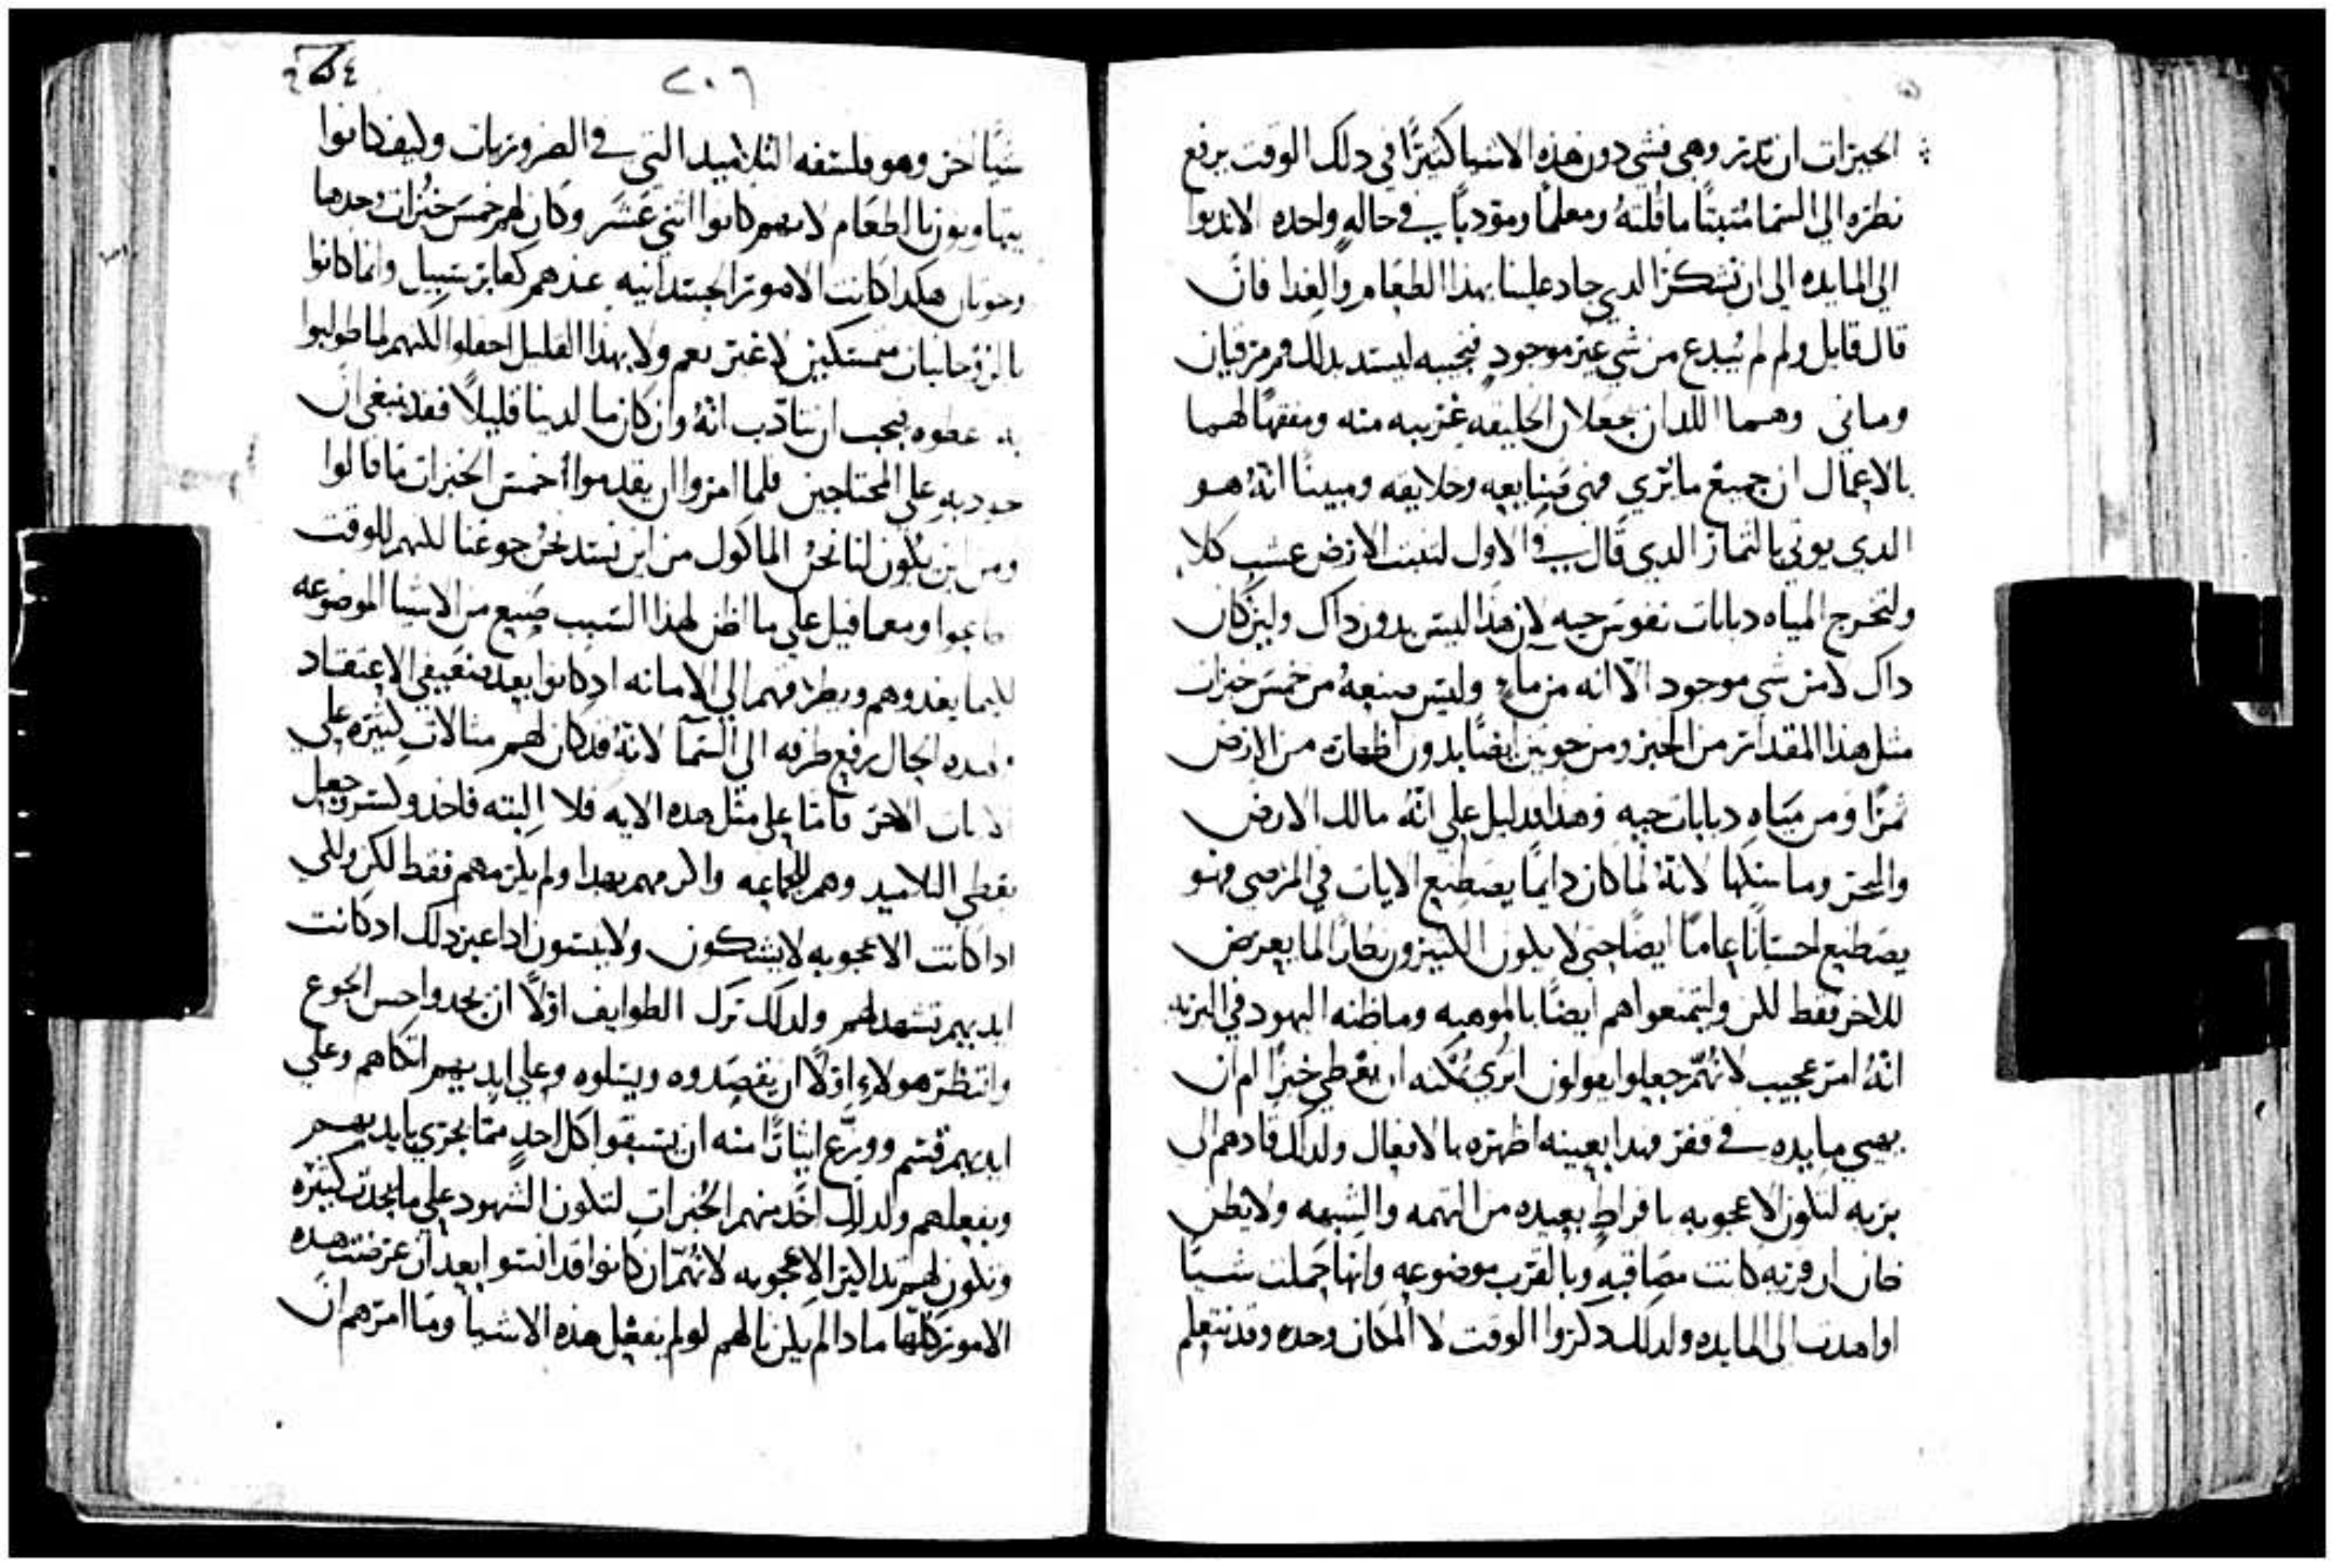 الخبزات ان تدر وهي فشي دون هذه الاشيا كثيرًا في دلك الوقت يرفع
نظره الي السما مثبتًا ما قلته ومعلمًا ومودبًا في حالهٍ واحده الا ندنوا
الي المايده الي ان نشكر الدي جاد علينا بهذا الطعام والغدا فان
قال قايل ولم لم يُبدع من شي غير موجودٍ فنجيبه ليسد بدلك فم مرقيان
وماني وهما اللدان يجعلان الخليقه غريبه منه ومفقهًا لهما
بالاعمال ان جميع ما يُري فهي صنايعه وخلايقه ومبينًا انهُ هو
الدي يوتي بالثمار الدي قال في الاول لتنبت الارض عشب كلا
ولتخرج المياه دبابات نفوس حيه لان هذا ليس بدون داك ولين كان
داك لا من شي موجود الّا انه من ماءٍ وليس صنعهُ من خمس خبزات
مثل هذا المقدار من الخبز ومن حوتين ايضًا بدون اظهاره من الارض
ثمرًا ومن مياهٍ دبابات حيه وهذا دليل علي انّهُ مالك الارض
والبحر وما شكلها لانهُ لما كان دايمًا يصطنع الايات في المرضي فهو
يصطنع احسانًا عامًا ايضًا حتي لا يكون الكثيرون نظارًا لما يعرض
للاخر فقط لكن وليتمتعوا هم ايضًا بالموهبه وما ظنه اليهود في البريه
انّهُ امر عجيب لانهُمّ جعلوا يقولون اتري يمكنه ان يعطي خبزًا ام ان
يهيي مايده في قفر فهدا بعينه اظهره بالافعال ولدلك قادهم الي
بريه لتكون الاعجوبه بافراطٍ بعيده من التهمه والشبهه ولا يظن
ظان ان قريه كانت مصاقبه وبالقرب موضوعه وانها حملت شيًا
او اهدت الي المايده ولدلك دكروا الوقت لا المكان وحده وقد نتعلم
٢٠٦
شيًّا اخر وهو فلسفه التلاميد التي في الضروريات وكيف كانوا
يتهاونون بالطعام لانهم كانوا اثني عشر وكان لهم خمس خُبزات وحدها
وحوتان هكدا كانت الامور الجسدانيه عندهم كعابر سبيل وانما كانوا
بالروحانيات متمسكين لا غير نعم ولا بهدا القليل احتفلوا لكنهم لما طولبوا
به عطوه فيجب ان نتادّب انّهُ وان كان ما لدينا قليلًا فقد ينبغي ان
نجود به علي المحتاجين فلما امروا ان يقدموا الخمس الخبزات ما قالوا
ومن اين يكون لنا نحنُ الماكول من اين نسد نحنُ جوعنا لكنهم للوقت
طاعوا ومعما قيل علي ما اظن لهذا السبب صنع من الاشيا الموضوعه
كيما يغدوهم ويطرقهم الي الامانه اد كانوا بعد ضعيفي الاعتقاد
فلهده الحال يرفع طرفه الي السمآ لانهُ قد كان لهم مثالات كثيره علي
الايات الاخر فامّا علي مثل هده الايه فلا البته فاخد وكسر وجعل
يعطي التلاميد وهم للجماعه واكرمهم بهدا ولم يكرمهم فقط لكن ولكي
ادا كانت الاعجوبه لا يشكون ولا ينسون ادا عبر دلك اد كانت
ايديهم تشهد لهم ولدلك ترك الطوايف اوّلًا ان يجدوا حس الجوع
وانتظر هولاءِ اوّلًا ان يقصدوه ويسلوه وعلي ايديهم اتكاهم وعلي
ايديهم قسم ووزّع ايثارًا منه ان يستبقوا كل احدٍ ممّا يجري بايديهم
وبفعلهم ولدلك اخد منهم الخُبزات لتكون الشهود علي ما يحدث كثيره
وتكون لهم تداكير الاعجوبه لانهُمّ ان كانوا قد انسو ابعد ان عرضت هده
الامور كلها مادا لم يكن نالهم لو لم يفعل هذه الاشيا وما امرهم ان